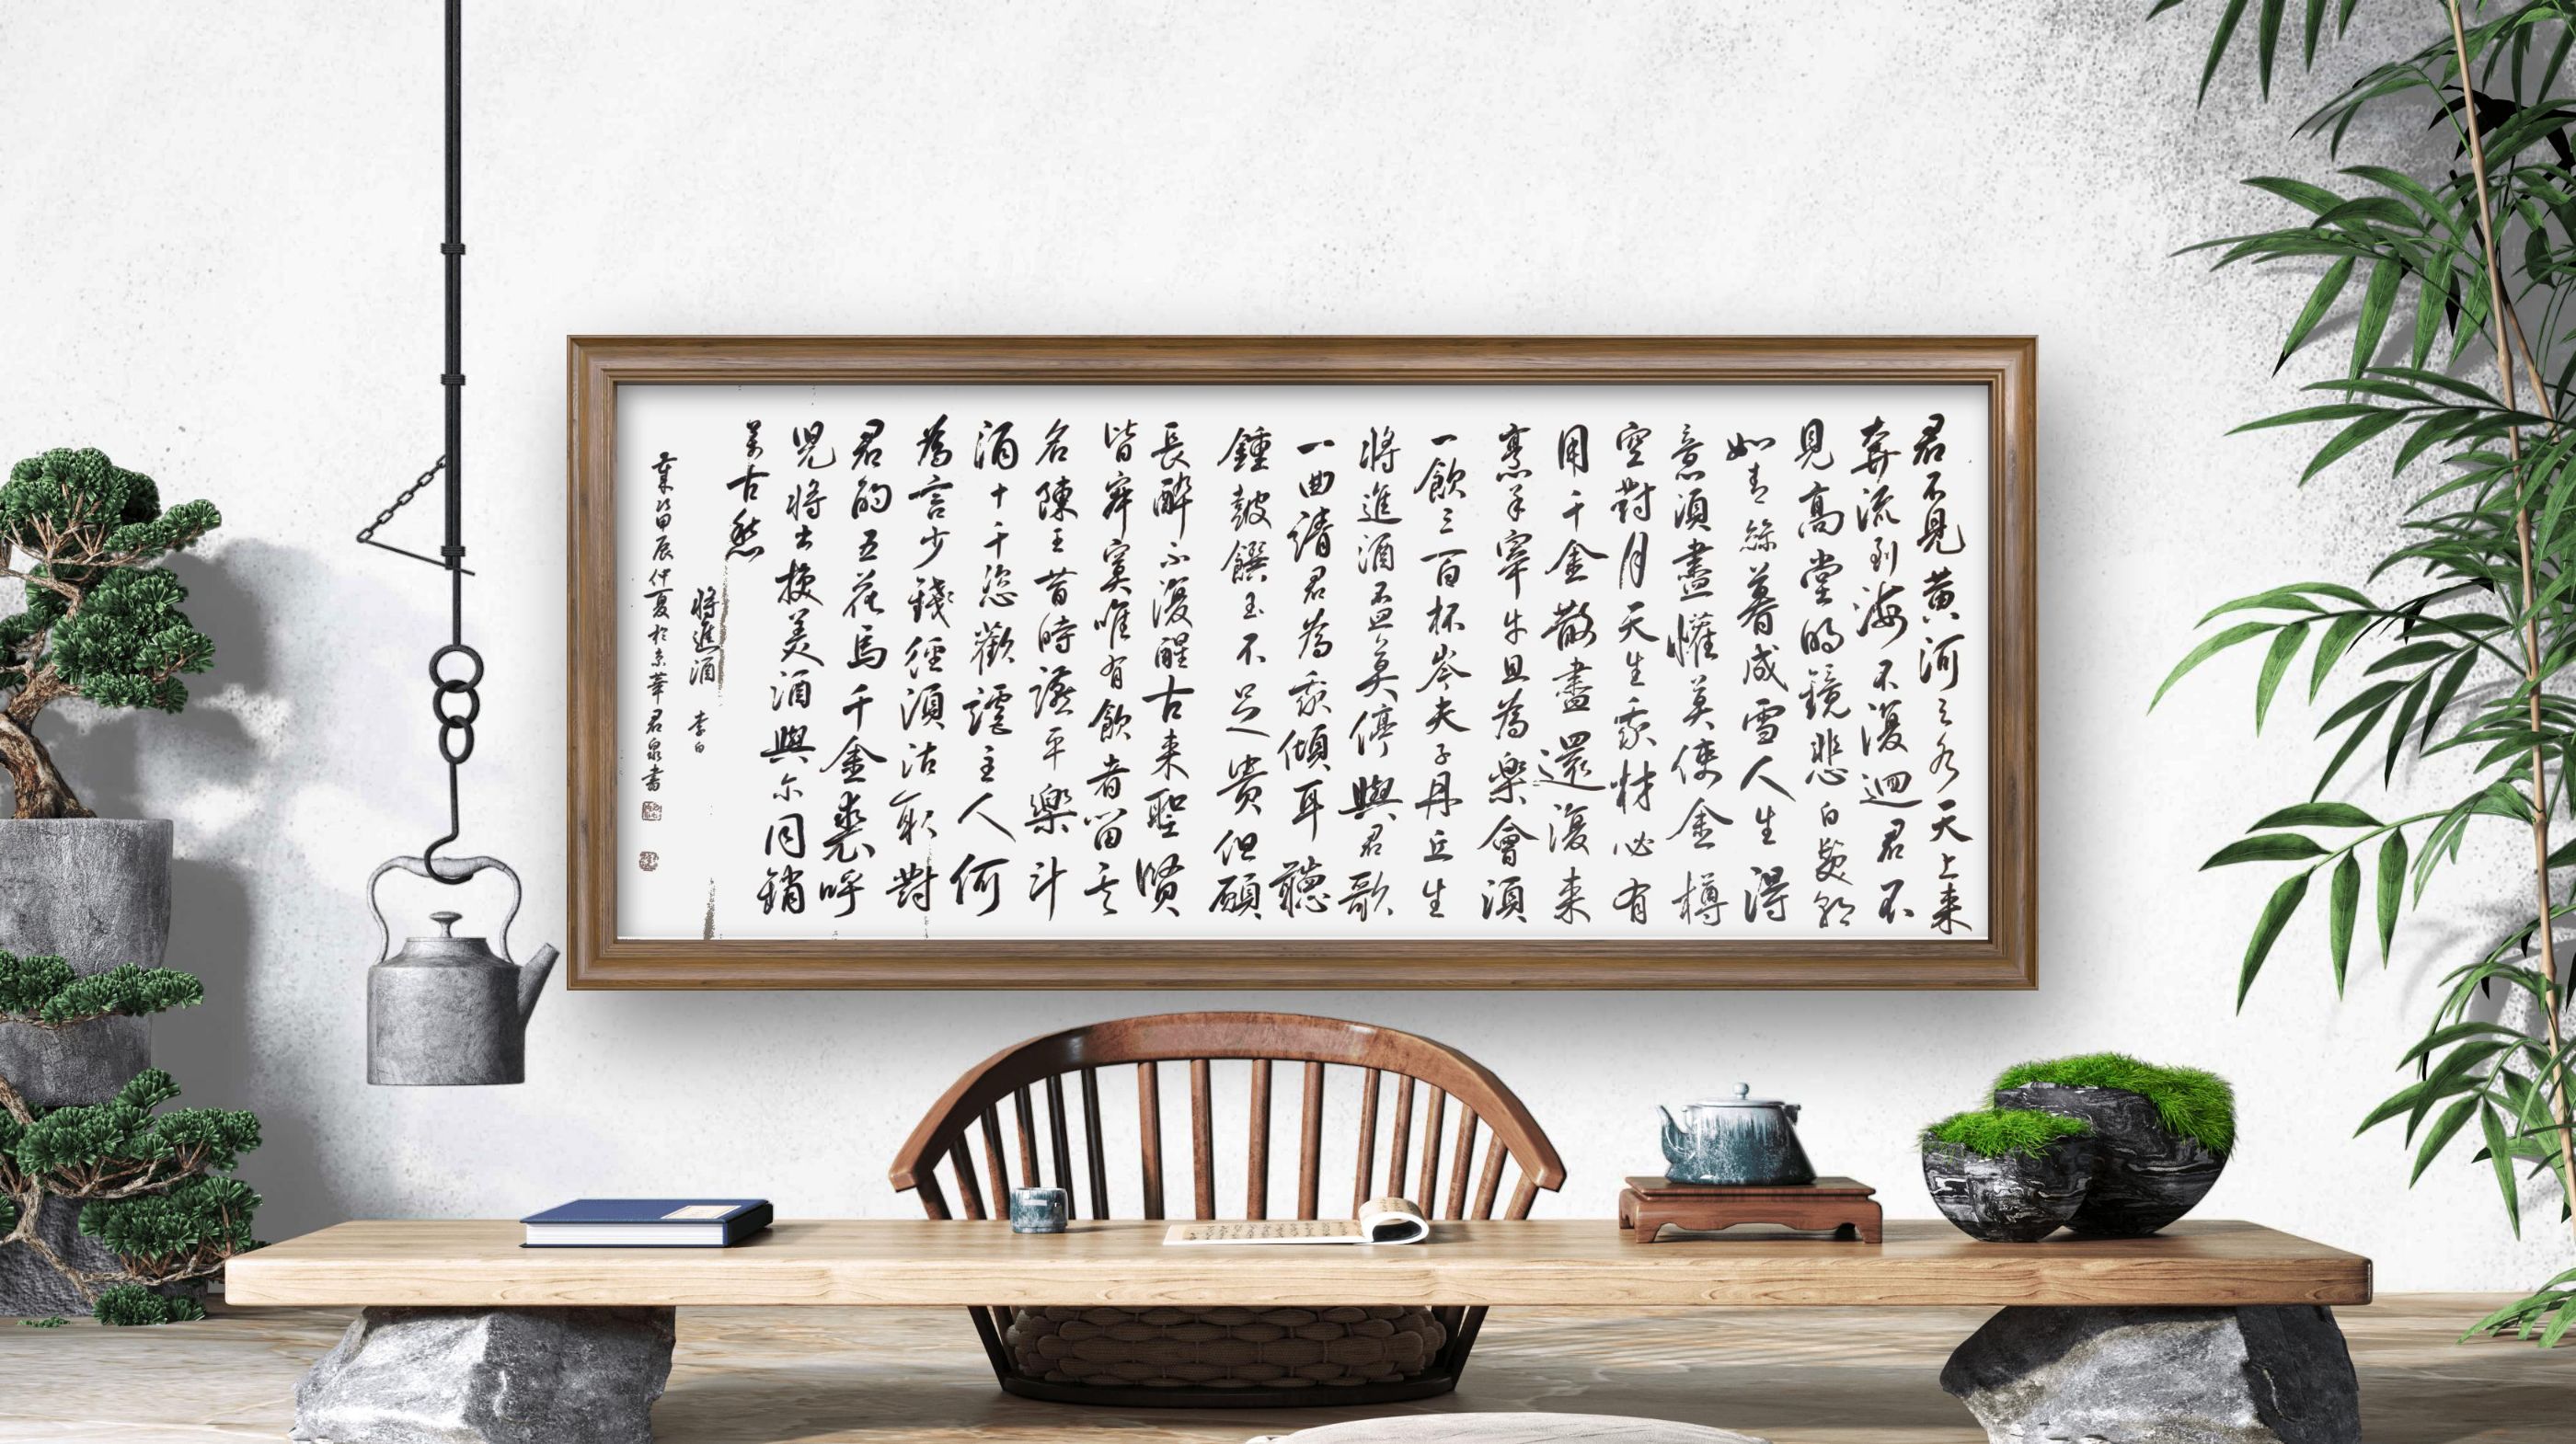 君不見黃河之水天上来
奔流到海不復迴君不
見高堂明鏡悲白髮朝
如青絲暮成雪人生得
意須盡懽莫使金樽
空對月天生我材必有
用千金散盡還復来
烹羊宰牛且為樂會須
一飲三百杯岑夫子丹丘生
將進酒盃莫停與君歌
一曲請君為我傾耳聽
鍾鼓饌玉不足貴但願
長醉不復醒古来聖賢
皆寂寞唯有飲者留其
名陳王昔時讌平樂斗
酒十千恣歡謔主人何
為言少錢徑須沽取對
君酌五花馬千金裘呼
兒將出換美酒與尔同銷
萬古愁
將進酒 李白
甲辰仲夏於京華君泉書